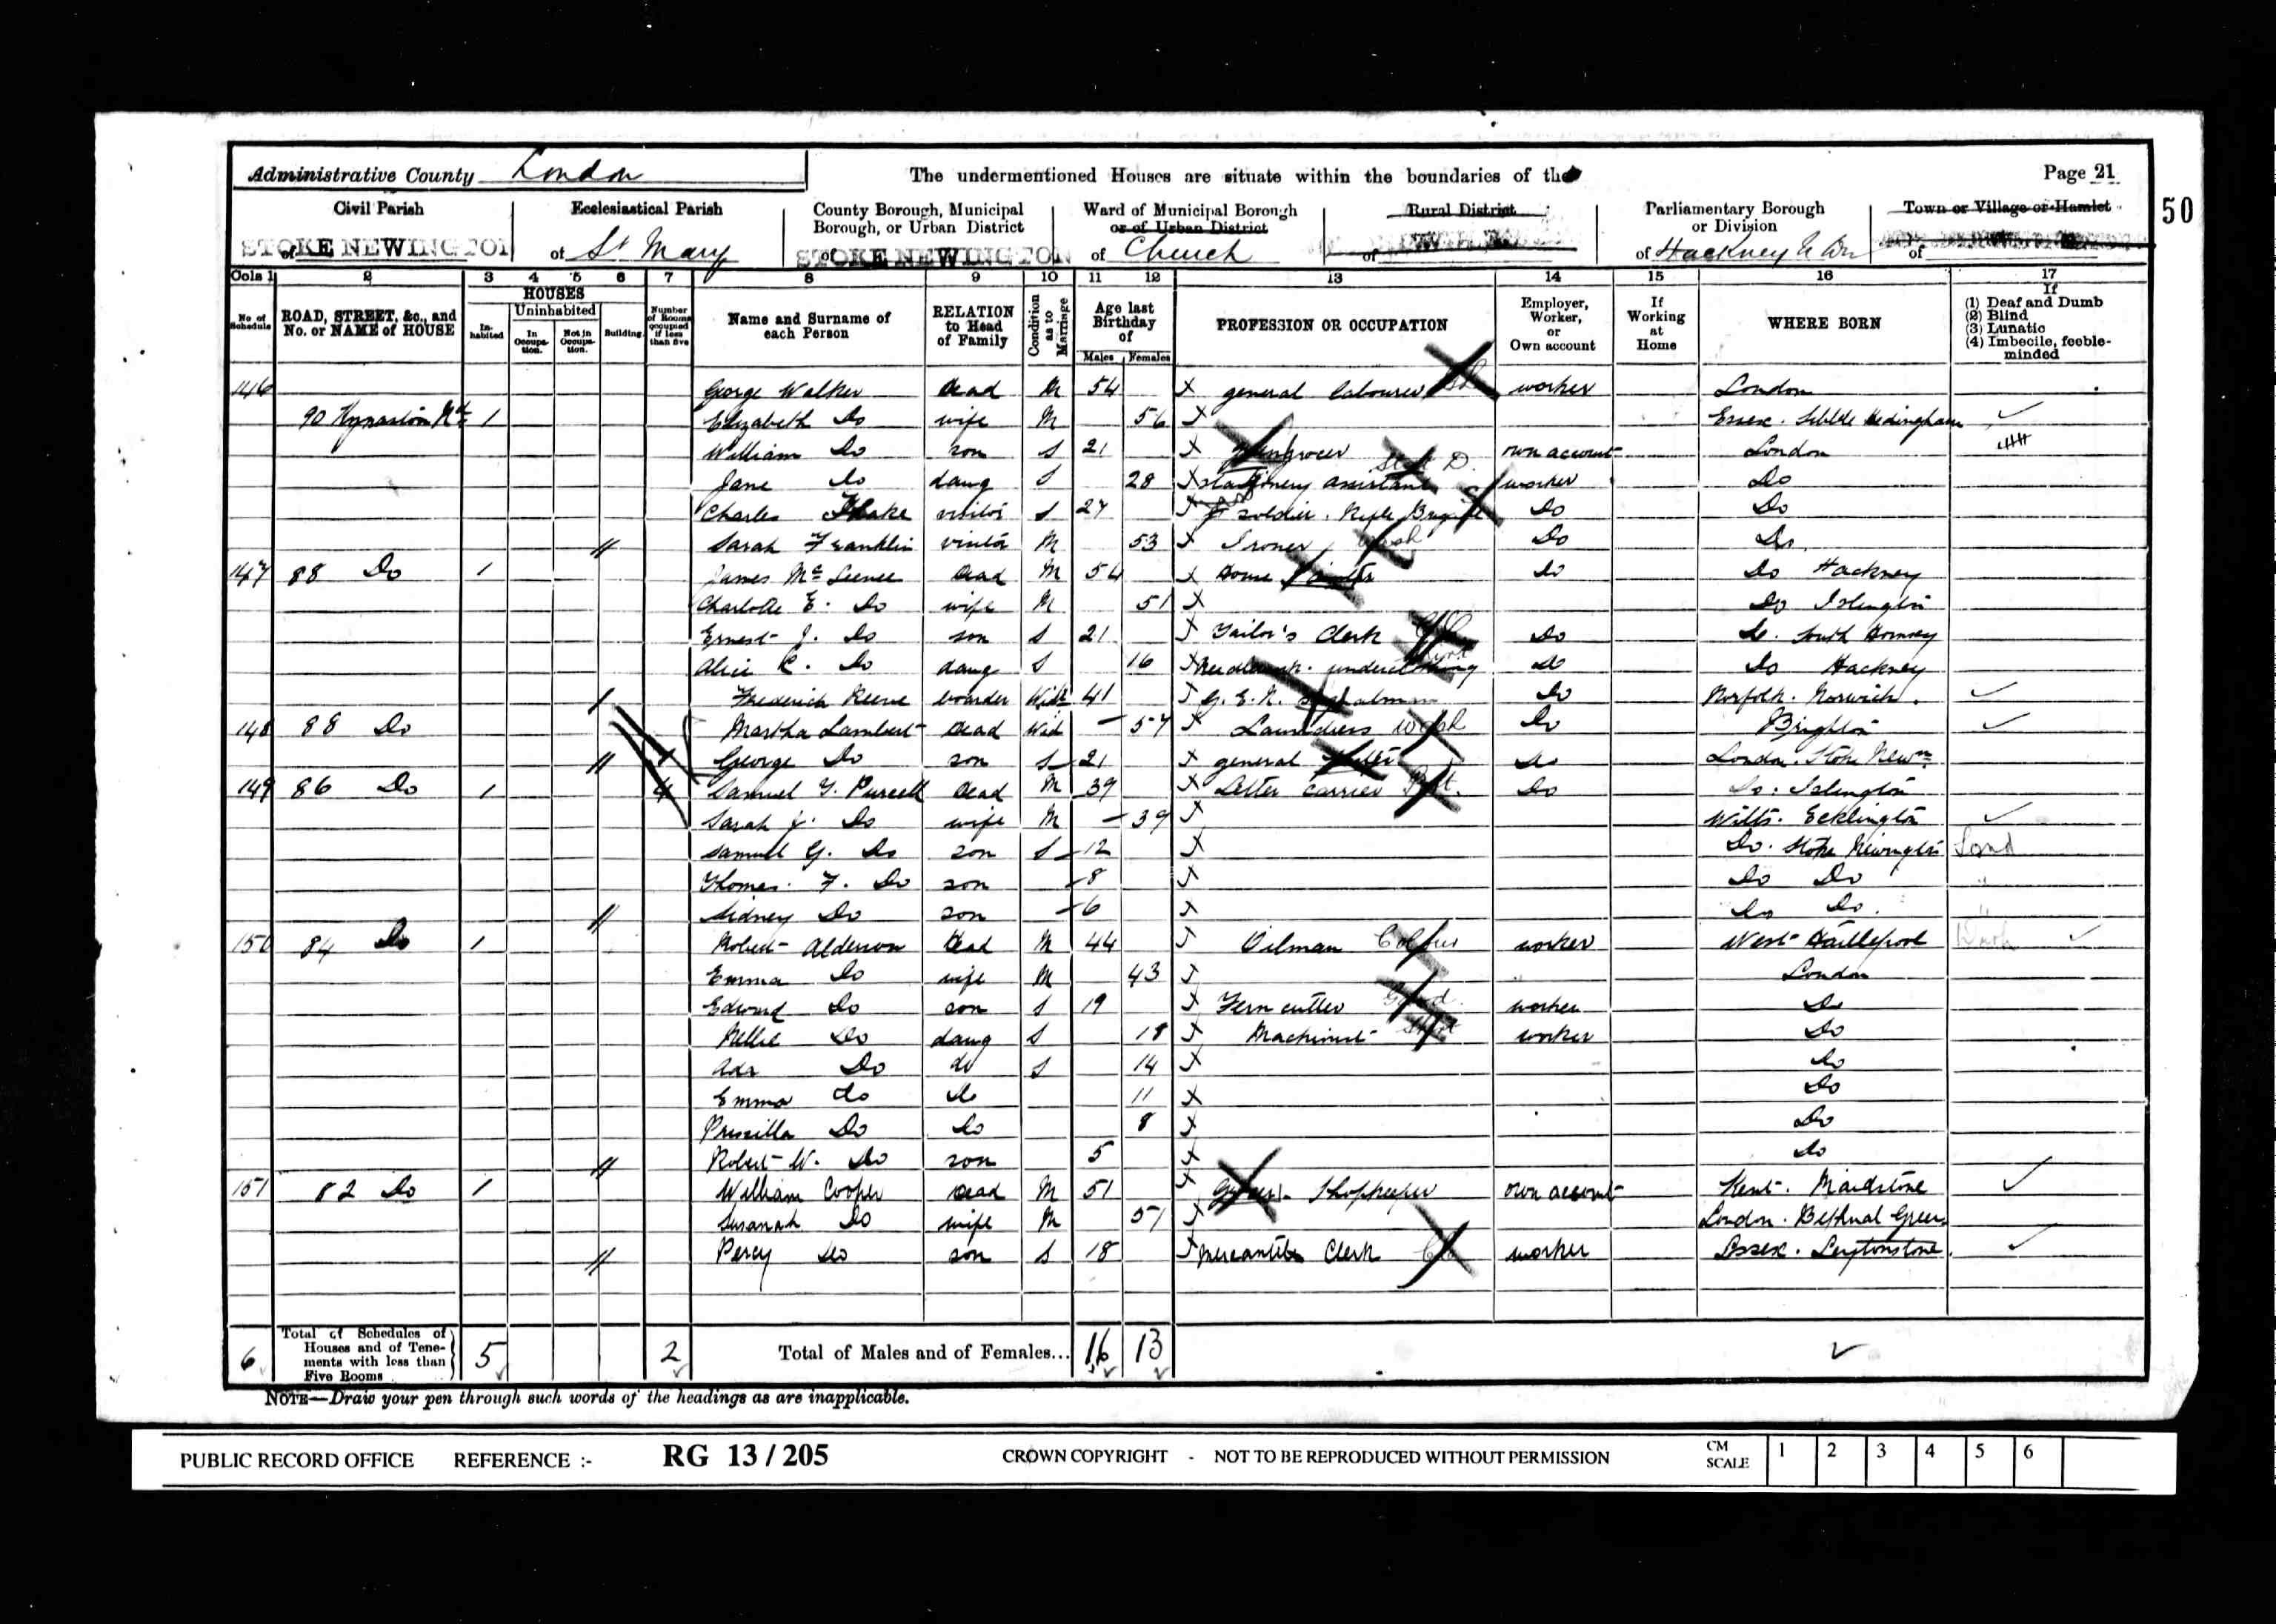 Administrative County London
The undermentioned Houses are situate within the boundaries of the
Page 21
50
Civil Parish
of STOKE NEWINGTON
Ecclesiastical Parish
of St Mary
County Borough, Municipal Borough, or Urban District
of STOKE NEWINGTON
Ward of Municipal Borough or of Urban District
of Church
Rural District
of
Parliamentary Borough or Division
of Hackney N
Town or Village or Hamlet
of
Cols 1 2 3 4 5 6 7 8 9 10 11 12 13 14 15 16 17
No. of Schedule
ROAD, STREET, &c., and No. or NAME of HOUSE
HOUSES
Inhabited
Uninhabited
In Occupation.
Not in Occupation.
Building
Number of Rooms occupied if less than five
Name and Surname of each Person
RELATION to Head of Family
Condition as to Marriage
Age last Birthday of
Males Females
PROFESSION OR OCCUPATION
Employer, Worker, or Own account
If Working at Home
WHERE BORN
If
(1) Deaf and Dumb
(2) Blind
(3) Lunatic
(4) Imbecile, feeble-minded
146 George Walker Head M 54 X general labourer worker London
90 Kynaston Rd 1 Elizabeth Do wife M 56 X Essex. Sible Hedingham
William Do son S 21 X greengrocer own account London
Jane do daug S 28 X stationery assistant worker Do
Charles visitor S 27 X soldier. Rifle Brigade Do Do
Sarah Franklin visitor M 53 X Ironer Wash Do Do
147 88 Do 1 James Mc Head M 54 X House Painter Do Do Hackney
Charlotte E. Do wife M 51 X Do Islington
Ernest J. Do son S 21 X Tailor's Clerk Do Do. South Hornsey
Alice C. Do daug S 16 X Needlework. underclothing do Do Hackney
Frederick Reeve boarder Widr 41 X G. E. R. Do Norfolk. Norwich.
148 88 Do Martha Lambert Head Wid 57 X Laundress Wash Do Brighton
George Do son S 21 X general do London. Stoke Newn
149 86 Do 1 4 Samuel G. Purcell Head M 39 X Letter carrier Do Do. Islington
Sarah J. Do wife M 39 X Wilts.
Samuel G. Do son S 12 X Do. Stoke Newington Lond
Thomas. F. Do son 8 X Do Do
Sidney Do son 6 X Do Do.
150 84 Do 1 Robert Alderson Head M 44 X Oilman worker West Hartlepool
Emma Do wife M 43 X London
Edward Do son S 19 X Fern cutter worker Do
Nellie Do daug S 18 X Machinist worker Do
Ada Do do S 14 X do
Emma do do 11 X Do
Priscilla Do Do 8 X Do
Robert W. Do son 5 X do
151 82 Do 1 William Cooper Head M 51 X Shopkeeper own account Kent. Maidstone
Susanah Do wife M 51 X London. Bethnal Green
Percy Do son S 18 X Mercantile Clerk worker Essex. Leytonstone.
6 Total of Schedules of Houses and of Tenements with less than Five Rooms 5 2 Total of Males and of Females... 16 13
NOTE—Draw your pen through such words of the headings as are inapplicable.
PUBLIC RECORD OFFICE REFERENCE :- RG 13 / 205 CROWN COPYRIGHT - NOT TO BE REPRODUCED WITHOUT PERMISSION CM SCALE 1 2 3 4 5 6